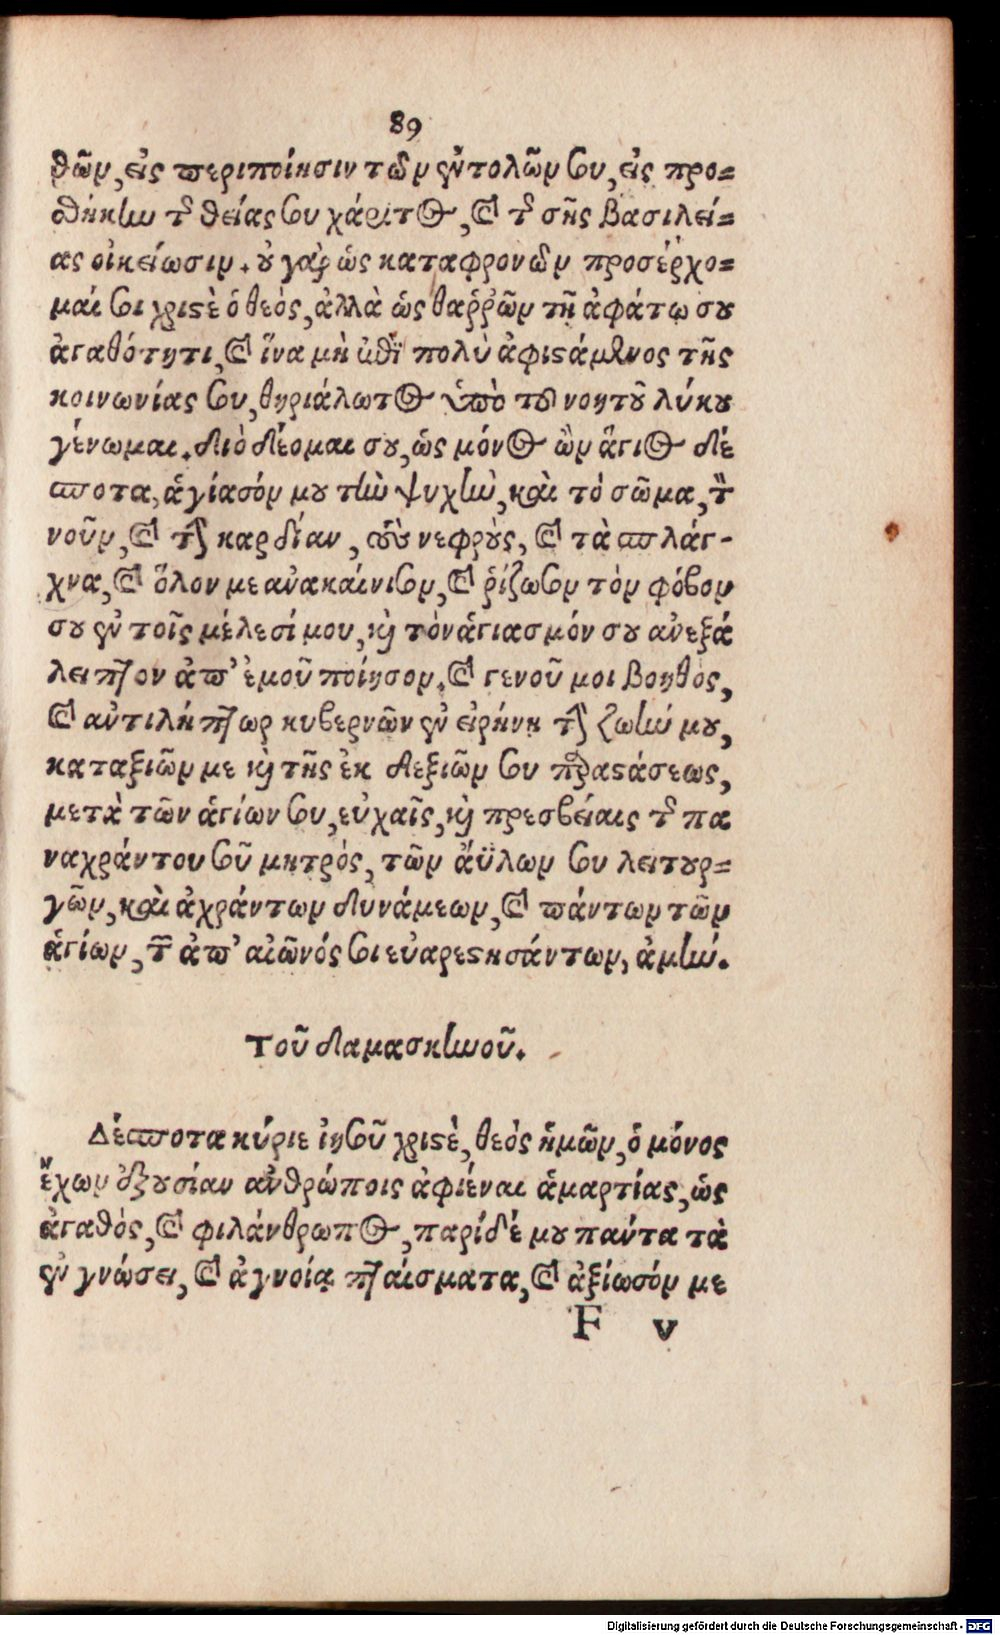 89
θῶν, εἰς περιποίησιν τῶν ἐντολῶν σου, εἰς προ=
σθήκην τῆς θείας σου χάριτος, καὶ τῆς σῆς βασιλεί=
ας οἰκείωσιν. οὐ γὰρ ὡς καταφρονῶν προσέρχο=
μαί σοι χριστὲ ὁ θεός, ἀλλὰ ὡς θαῤῥῶν τῇ ἀφάτῳ σου
ἀγαθότητι, καὶ ἵνα μὴ ἐπὶ πολὺ ἀφιστάμενος τῆς
κοινωνίας σου, θηριάλωτος ὑπὸ τοῦ νοητοῦ λύκου
γένωμαι. διὸ δέομαι σου, ὡς μόνος ὢν ἅγιος δέ
σποτα, ἁγίασόν μου τὴν ψυχὴν, καὶ τὸ σῶμα, τὸν
νοῦν, καὶ τὴν καρδίαν, τοὺς νεφροὺς, καὶ τὰ σπλάγ-
χνα, καὶ ὅλον με ἀνακαίνισον, καὶ ῥίζωσον τὸν φόβον
σου ἐν τοῖς μέλεσί μου, καὶ τὸν ἁγιασμόν σου ἀνεξά
λειπτον ἀπ' ἐμοῦ ποίησον. καὶ γενοῦ μοι βοηθὸς,
καὶ ἀντιλήπτωρ κυβερνῶν ἐν εἰρήνῃ τὴν ζωήν μου,
καταξιῶν με καὶ τῆς ἐκ δεξιῶν σου παραστάσεως,
μετὰ τῶν ἁγίων σου, εὐχαῖς, καὶ πρεσβείαις τῆς πα
ναχράντου σοῦ μητρὸς, τῶν ἀΰλων σου λειτουρ=
γῶν, καὶ ἀχράντων δυνάμεων, καὶ πάντων τῶν
ἁγίων, τῶν ἀπ' αἰῶνός σοι εὐαρεστησάντων, ἀμήν.
Τοῦ δαμασκηνοῦ.
Δέσποτα κύριε ἰησοῦ χριστὲ, θεὸς ἡμῶν, ὁ μόνος
ἔχων ἐξουσίαν ἀνθρώποις ἀφιέναι ἁμαρτίας, ὡς
ἀγαθὸς, καὶ φιλάνθρωπος, παρίδέ μου πάντα τὰ
ἐν γνώσει, καὶ ἀγνοίᾳ πταίσματα, καὶ ἀξίωσόν με
F v
Digitalisierung gefördert durch die Deutsche Forschungsgemeinschaft - DFG